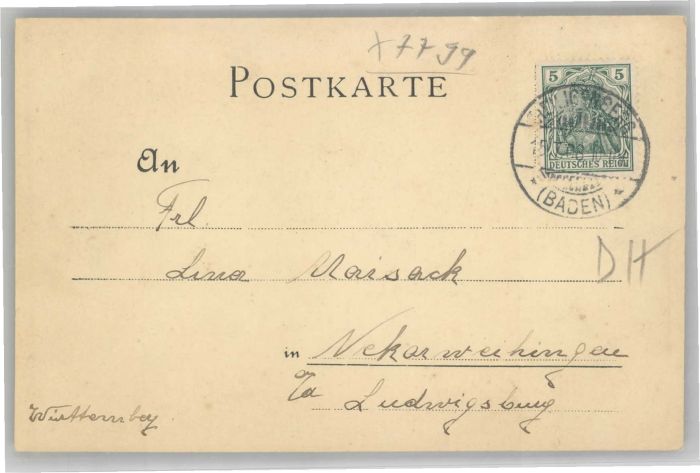 x 7799
POSTKARTE
5 5
DEUTSCHES REICH
HEILIGENBERG
(BADEN)
An
Frl.
Lina Maisack
DH
in Nekarweihingen
Ludwigsburg
Württembg.